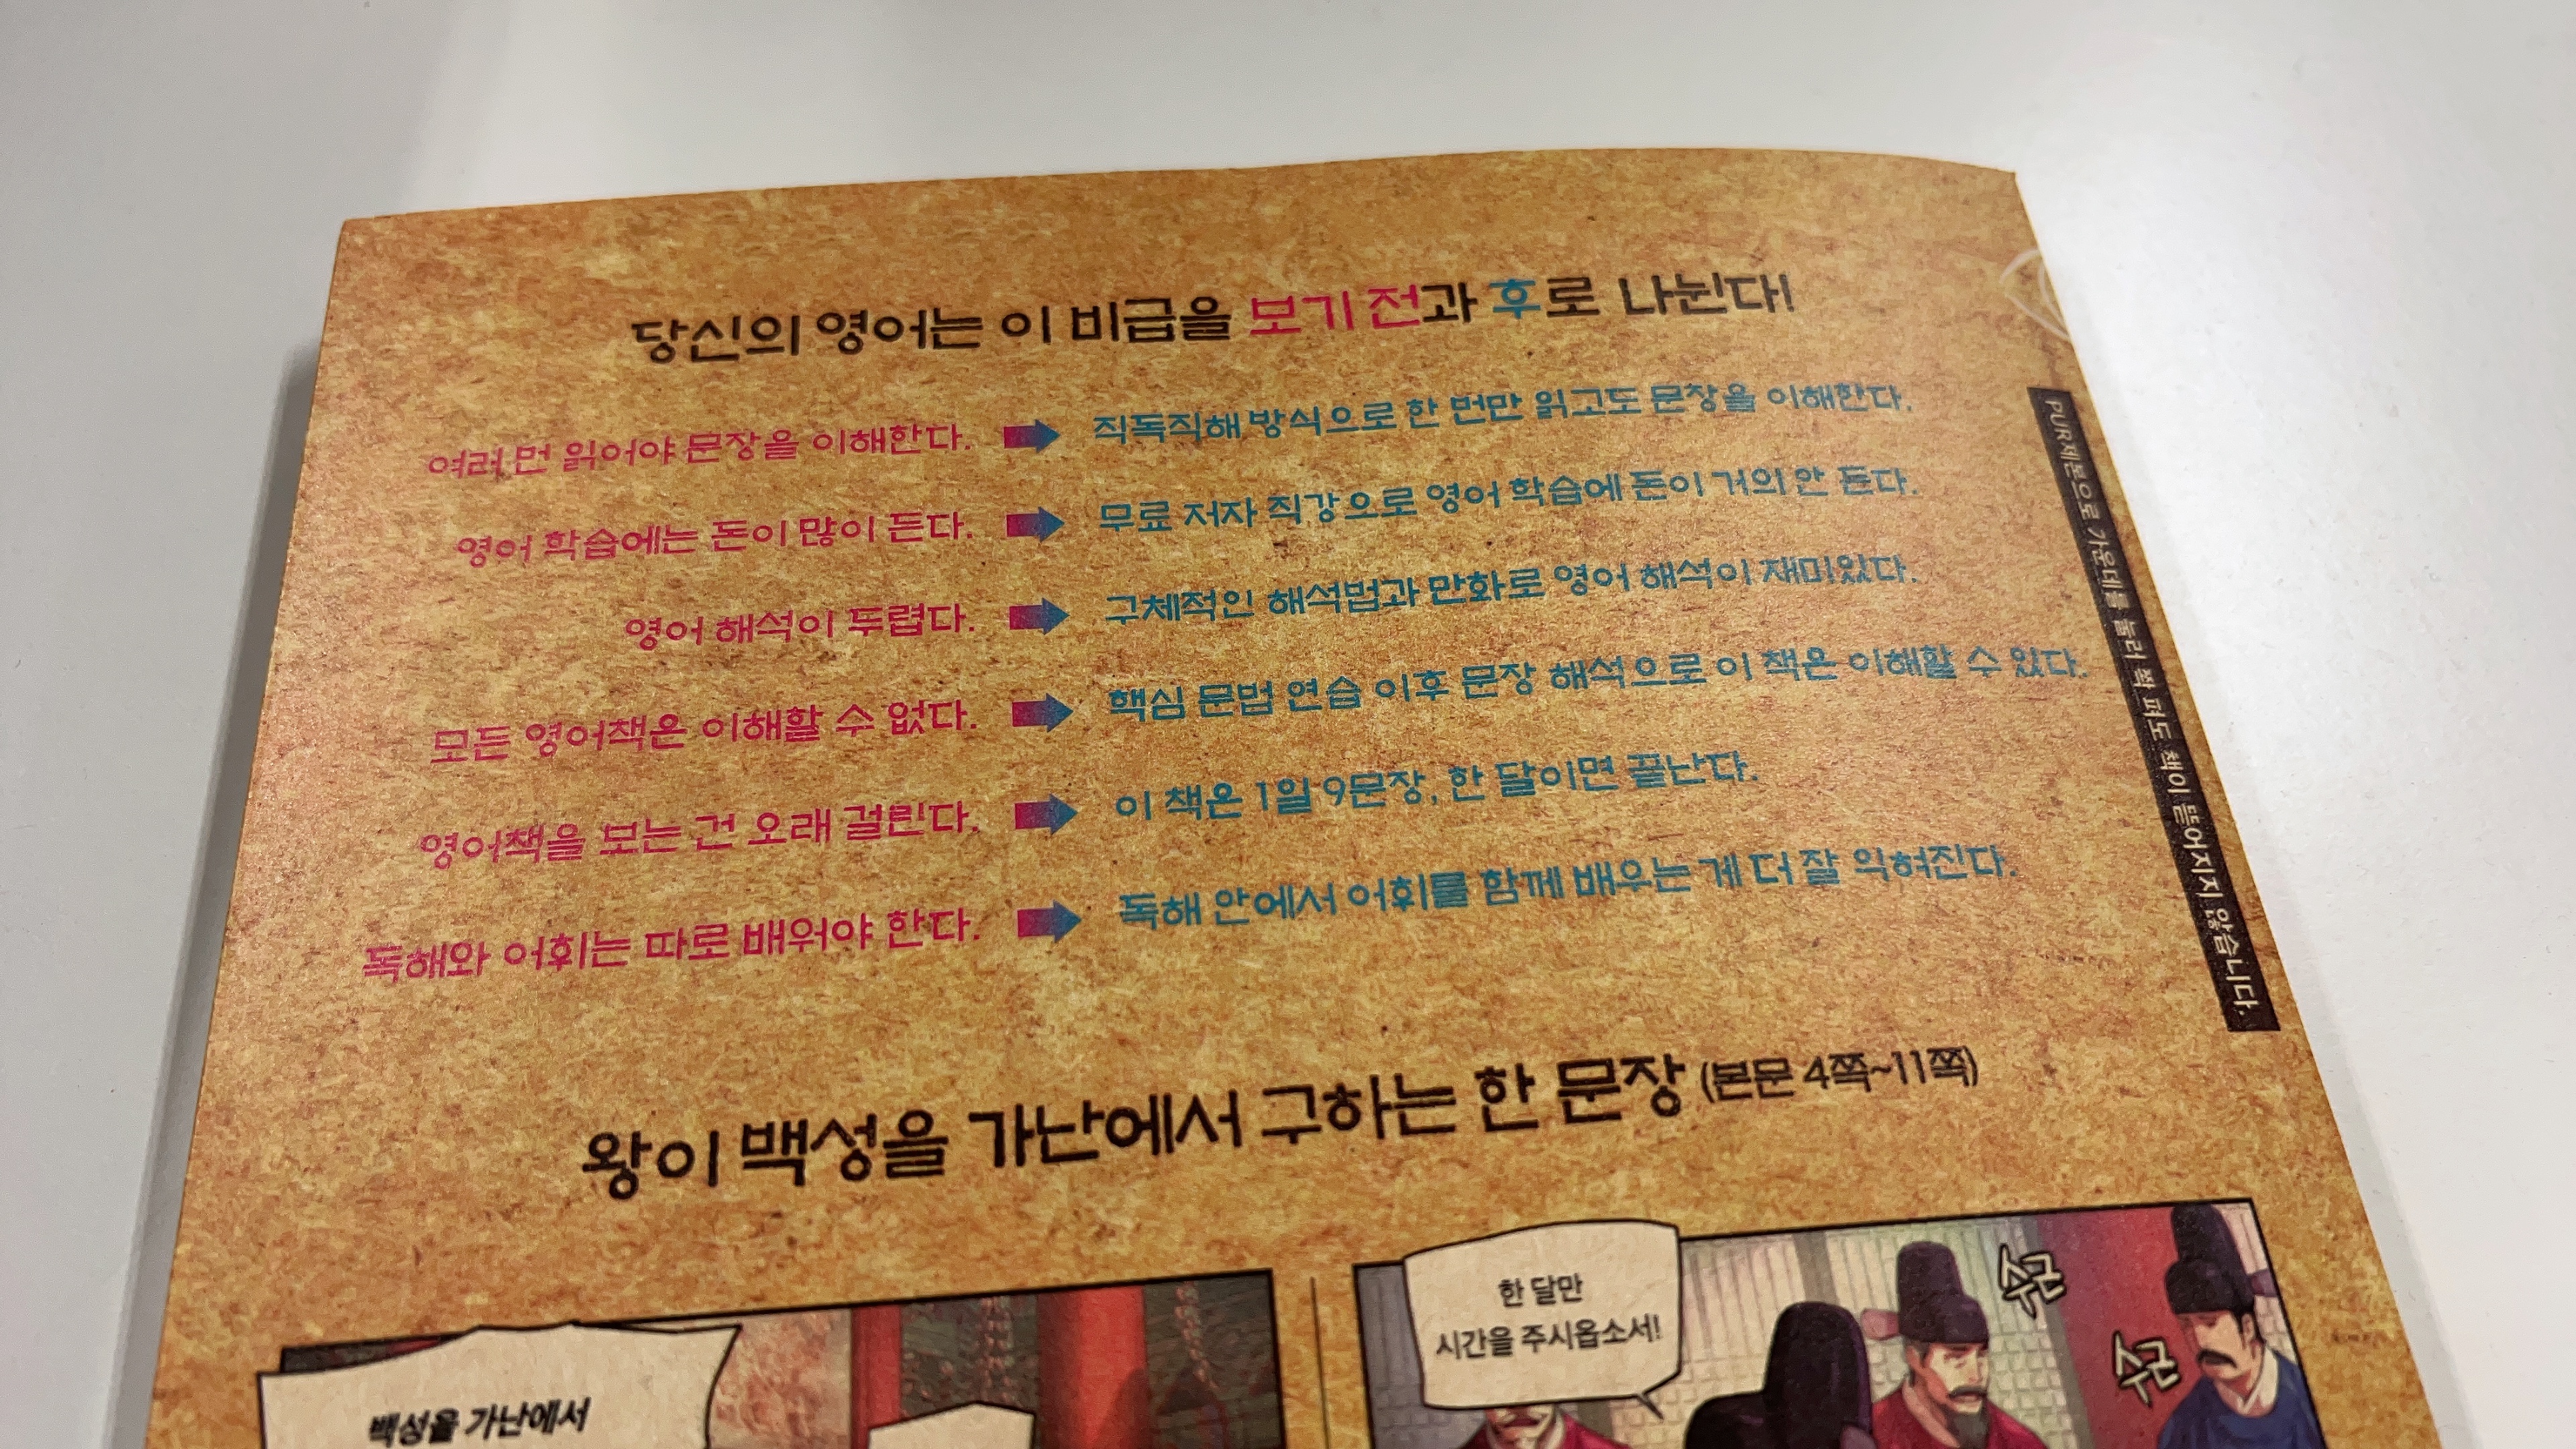 당신의 영어는 이 비급을 보기 전과 후로 나뉜다!
여러 번 읽어야 문장을 이해한다. 직독직해 방식으로 한 번만 읽고도 문장을 이해한다.
영어 학습에는 돈이 많이 든다. 무료 저자 직강으로 영어 학습에 돈이 거의 안 든다.
영어 해석이 두렵다. 구체적인 해석법과 만화로 영어 해석이 재미있다.
모든 영어책은 이해할 수 없다. 핵심 문법 연습 이후 문장 해석으로 이 책은 이해할 수 있다.
영어책을 보는 건 오래 걸린다. 이 책은 1일 9문장, 한 달이면 끝난다.
독해와 어휘는 따로 배워야 한다. 독해 안에서 어휘를 함께 배우는 게 더 잘 익혀진다.
PUR제본으로 가운데를 눌러 쫙 펴도 책이 뜯어지지 않습니다.
왕이 백성을 가난에서 구하는 한 문장 (본문 4쪽~11쪽)
백성을 가난에서
한 달만
시간을 주시옵소서!
수군
수군